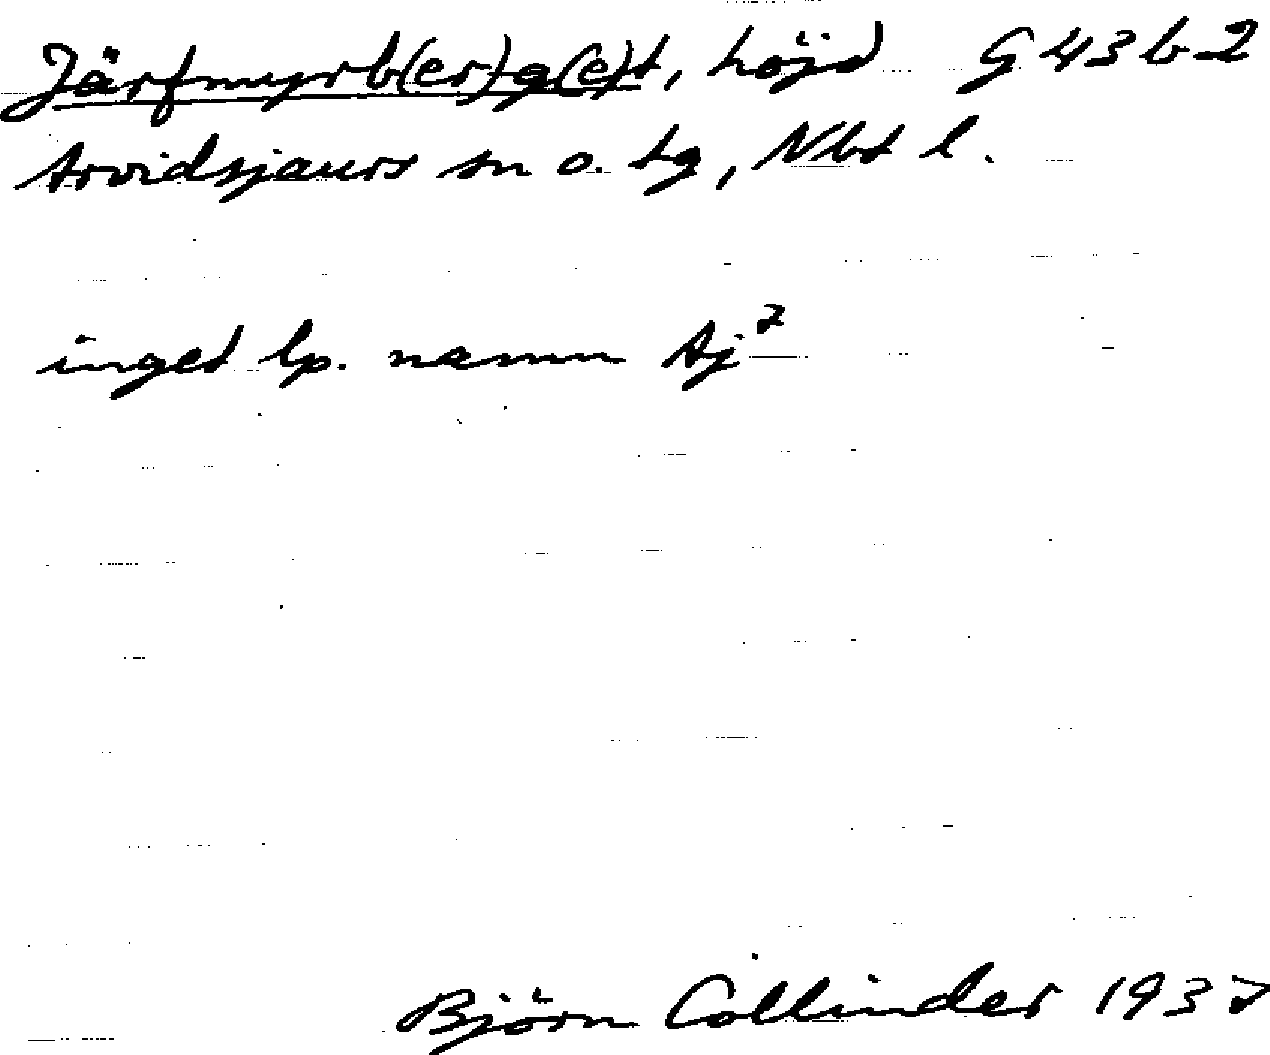 Järfmyrb(er)g(e)t, höjd G 43 b 2
Arvidsjaurs sn o. tg, Nbt l.
inget lp. namn Aj⁷
Björn Collinder 1937